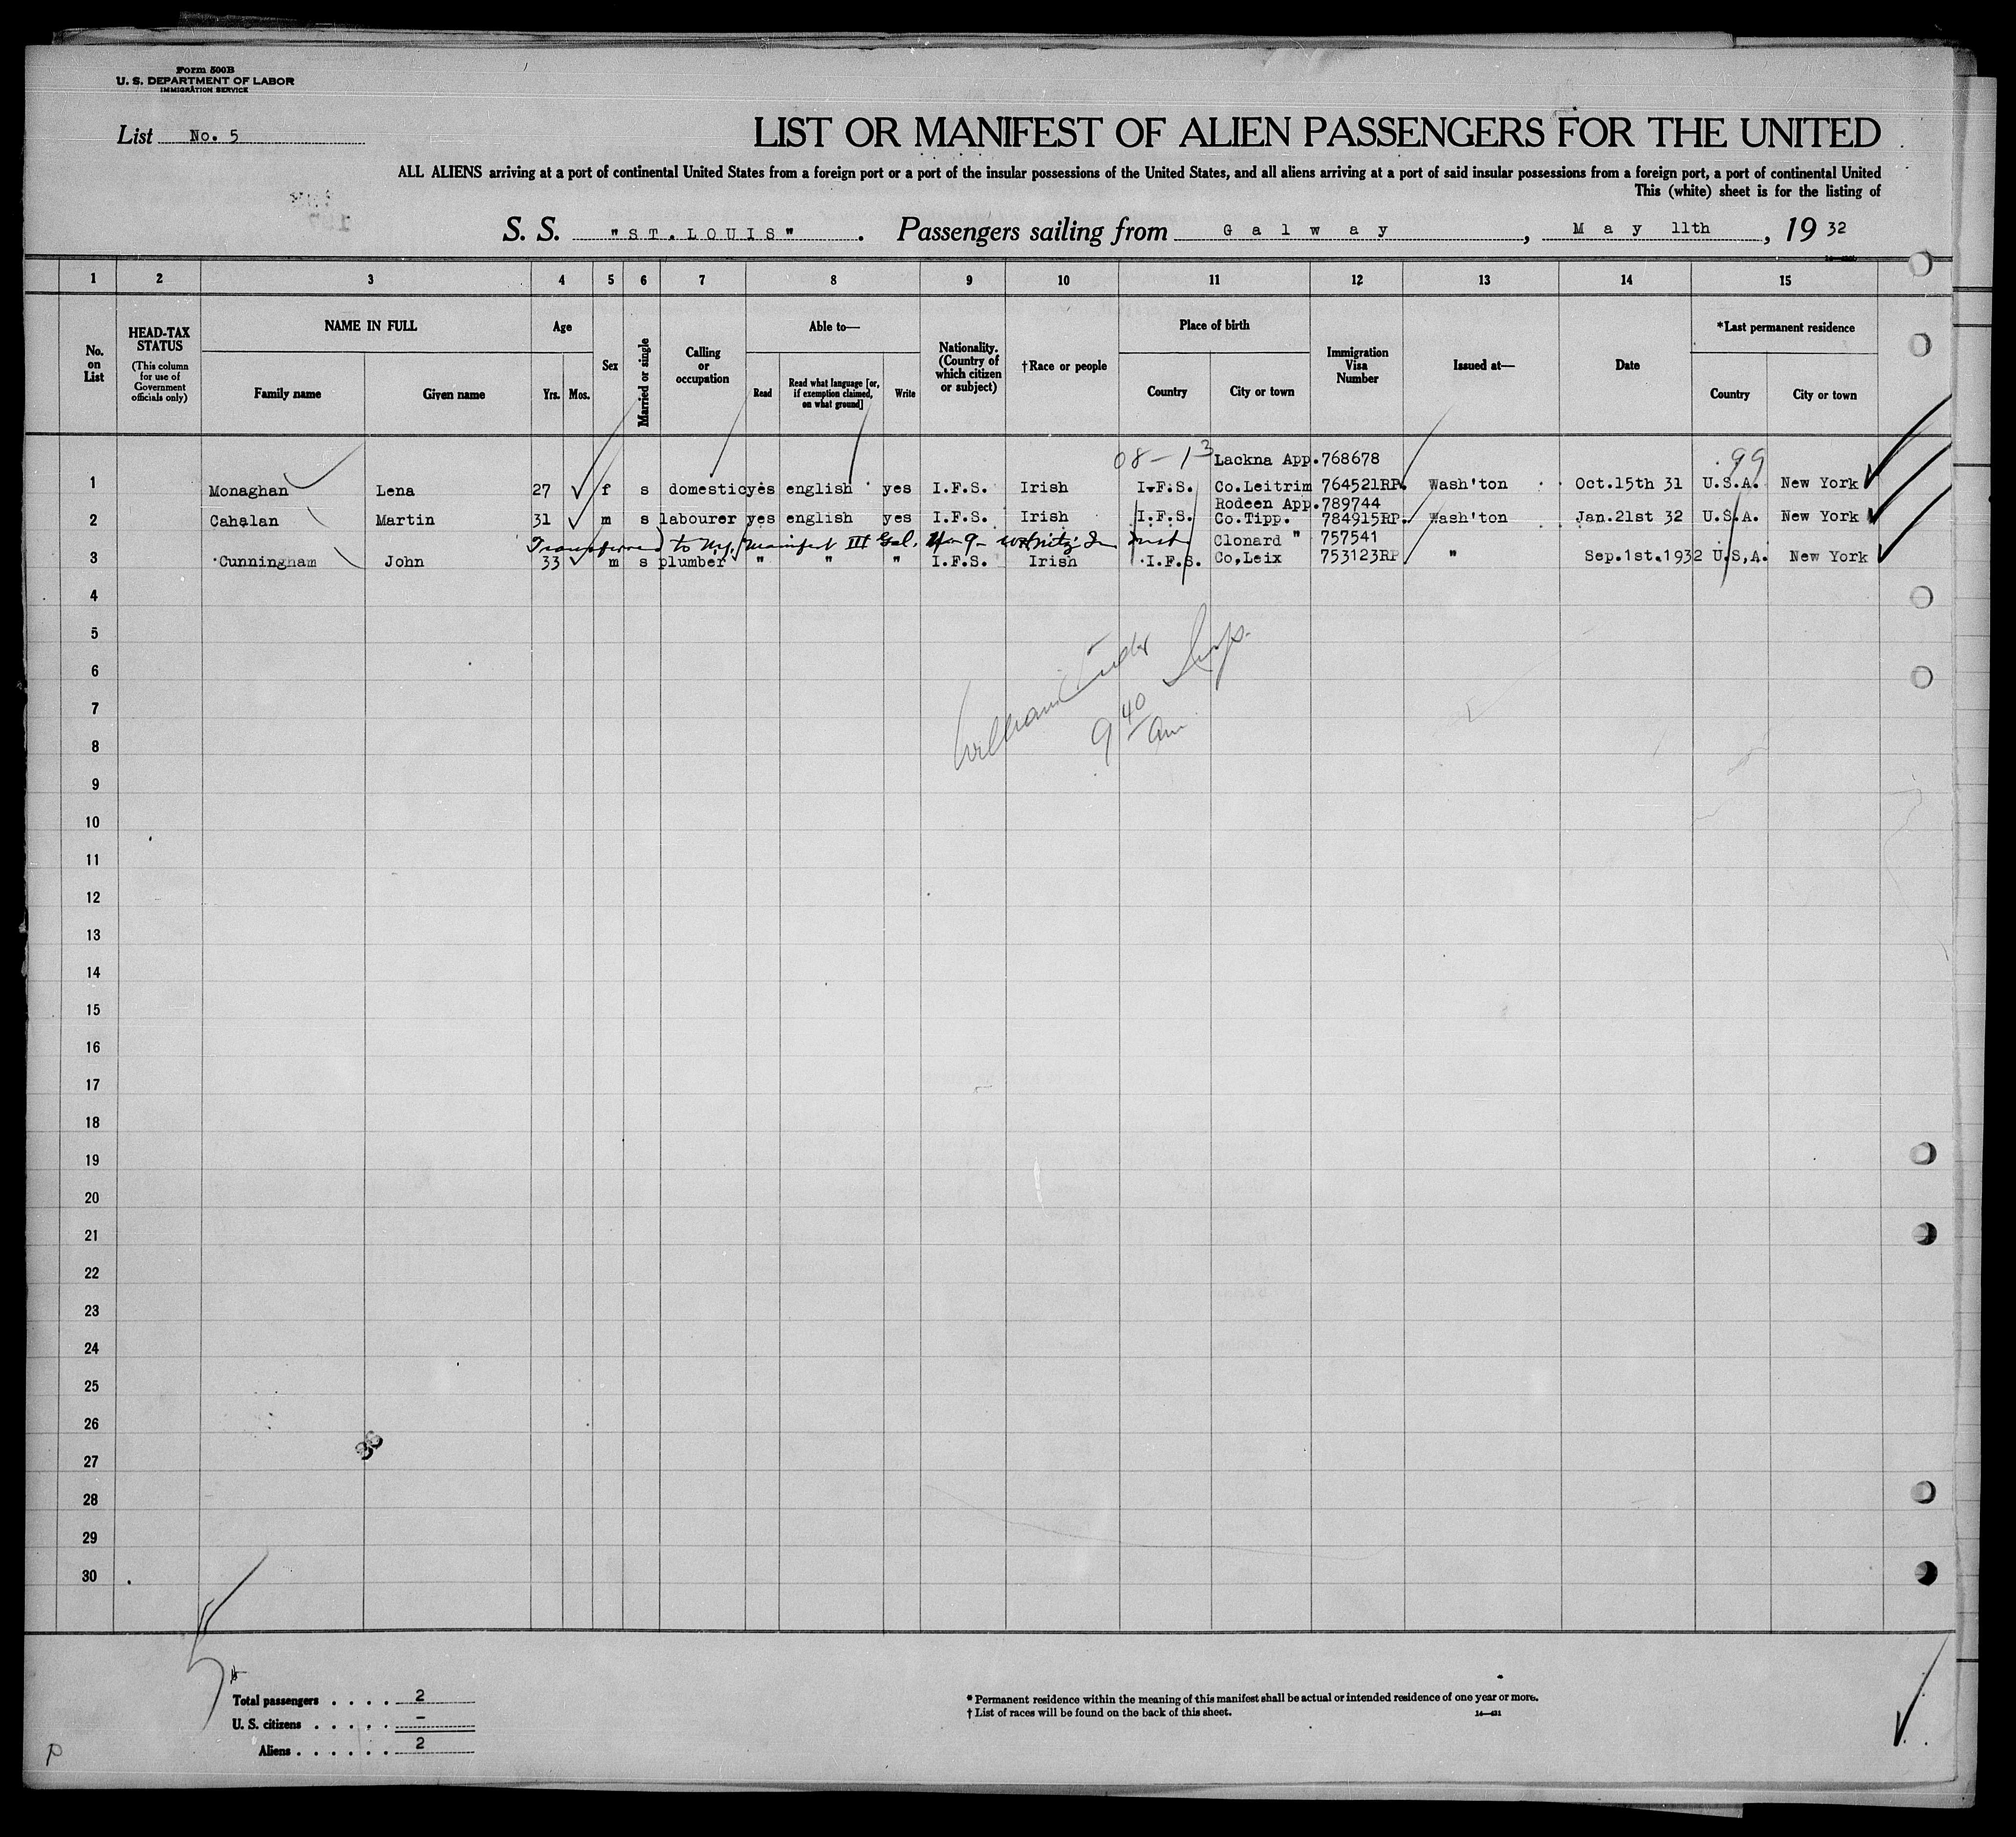 Form 500B
U. S. DEPARTMENT OF LABOR
IMMIGRATION SERVICE
List No. 5
LIST OR MANIFEST OF ALIEN PASSENGERS FOR THE UNITED
ALL ALIENS arriving at a port of continental United States from a foreign port or a port of the insular possessions of the United States, and all aliens arriving at a port of said insular possessions from a foreign port, a port of continental United
This (white) sheet is for the listing of
S. S. "ST.LOUIS" . Passengers sailing from Galway , May 11th , 19 32
1 2 3 4 5 6 7 8 9 10 11 12 13 14 15
No. on List
HEAD-TAX STATUS
(This column for use of Government officials only)
NAME IN FULL
Family name Given name
Age
Yrs. Mos.
Sex
Married or single
Calling or occupation
Able to—
Read
Read what language [or, if exemption claimed, on what ground]
Write
Nationality. (Country of which citizen or subject)
†Race or people
Place of birth
Country City or town
Immigration Visa Number
Issued at—
Date
*Last permanent residence
Country City or town
08-13 Lackna App.768678 99
1 Monaghan Lena 27 f s domestic yes english yes I.F.S. Irish I.F.S. Co.Leitrim 764521RP. Wash'ton Oct.15th 31 U.S.A. New York
Rodeen App.789744
2 Cahalan Martin 31 m s labourer yes english yes I.F.S. Irish I.F.S. Co.Tipp. 784915RP. Wash'ton Jan.21st 32 U.S.A. New York
Transferred to My. Manifest III Gal.
Clonard " 757541
3 Cunningham John 33 m s plumber " " " I.F.S. Irish I.F.S. Co,Leix 753123RP " Sep.1st.1932 U.S,A. New York
4
5
6
William Insp.
7
9 40 am
8
9
10
11
12
13
14
15
16
17
18
19
20
21
22
23
24
25
26
27
28
29
30
Total passengers . . . . 2
U. S. citizens . . . . . –
Aliens . . . . . . 2
* Permanent residence within the meaning of this manifest shall be actual or intended residence of one year or more.
† List of races will be found on the back of this sheet.
P